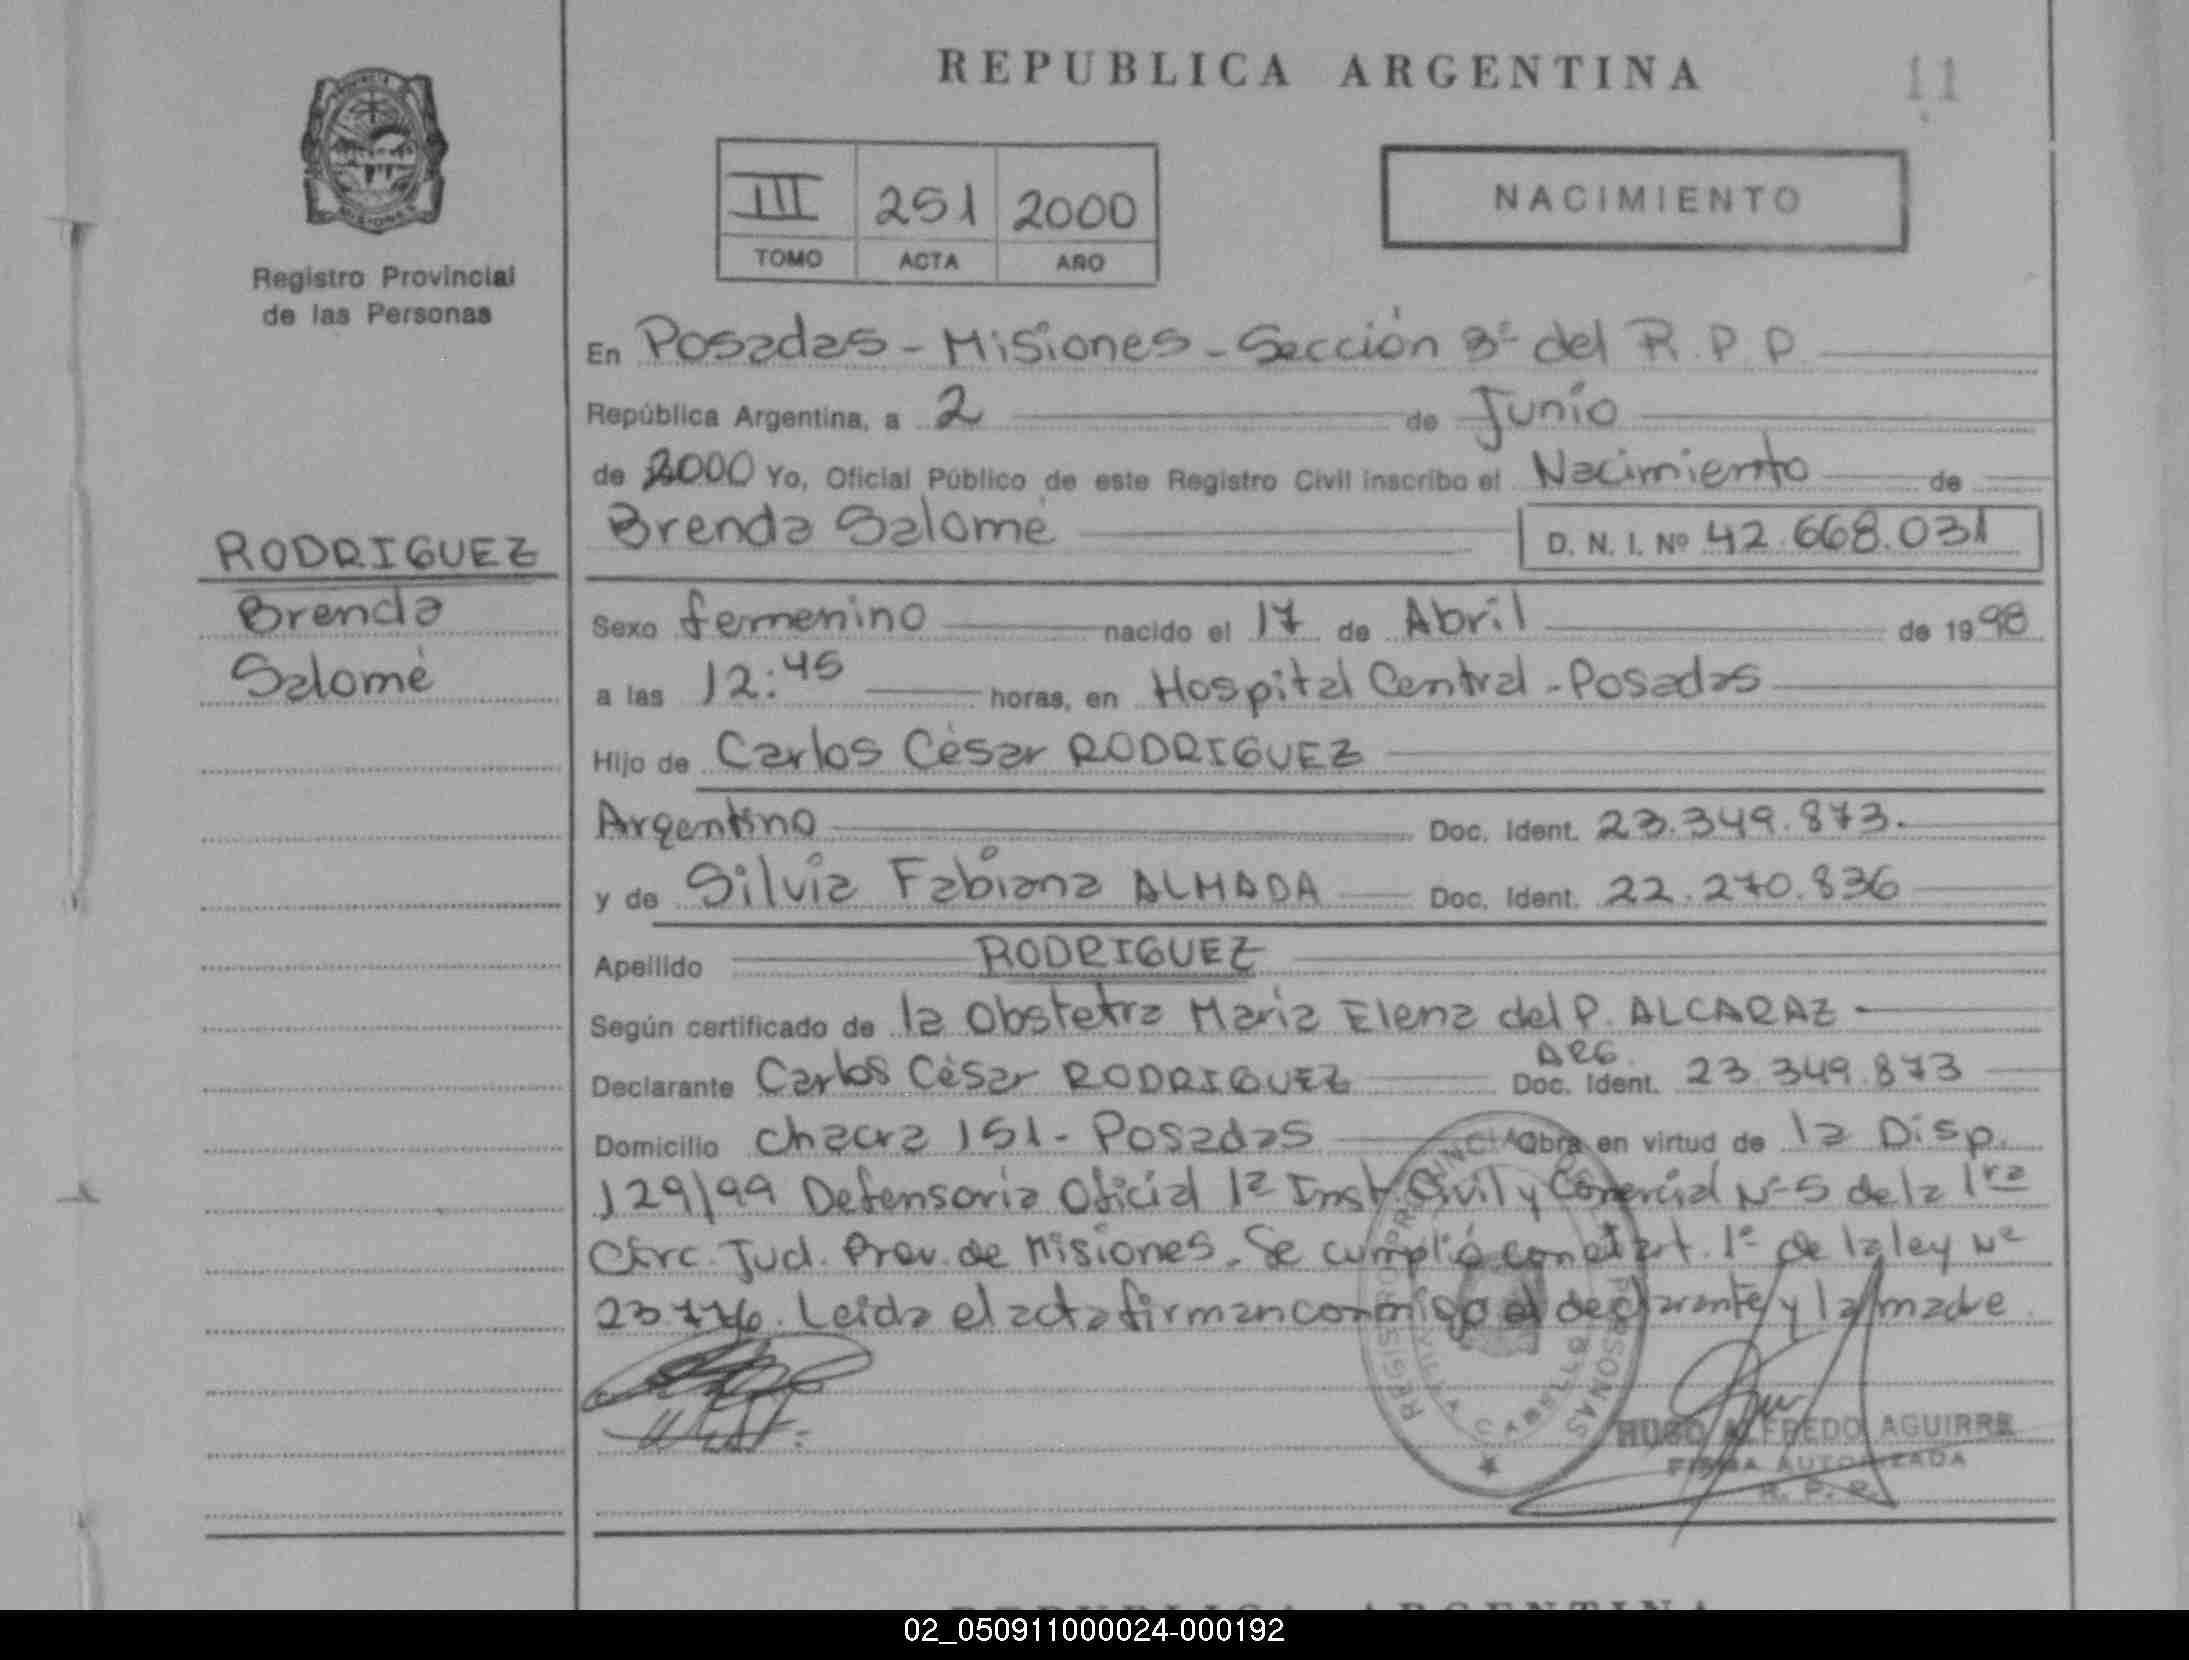 REPUBLICA ARGENTINA
11
PROVINCIA
MISIONES
Registro Provincial
de las Personas
III 251 2000
TOMO ACTA AÑO
NACIMIENTO
En Posadas - Misiones - Sección 3ª del R.P.P.
República Argentina, a 2 de Junio
de 2000 Yo, Oficial Público de este Registro Civil inscribo el Nacimiento de
Brenda Salomé D. N. I. Nº 42.668.031
RODRIGUEZ
Brenda
Salomé
Sexo femenino nacido el 17 de Abril de 1998
a las 12:45 horas, en Hospital Central - Posadas
Hijo de Carlos César RODRIGUEZ
Argentino Doc. Ident. 23.349.873.
y de Silvia Fabiana ALMADA Doc. Ident. 22.270.836
Apellido RODRIGUEZ
Según certificado de la Obstetra Maria Elena del P. ALCARAZ
Declarante Carlos César RODRIGUEZ ARG. Doc. Ident. 23.349.873
Domicilio Chacra 151 - Posadas Obra en virtud de la Disp.
129/99 Defensoria Oficial 1ª Inst. Civil y Comercial Nº 5 de la 1ra
Circ. Jud. Prov. de Misiones. Se cumplió con el art. 1º de la ley Nº
23.776. Leida el acta firman conmigo el declarante y la madre
REGISTRO PROVINCIAL DE PERSONAS
VILLA CABELLO
HUGO ALFREDO AGUIRRE
FIRMA AUTORIZADA
R. P. P.
REPUBLICA ARGENTINA
02_050911000024-000192